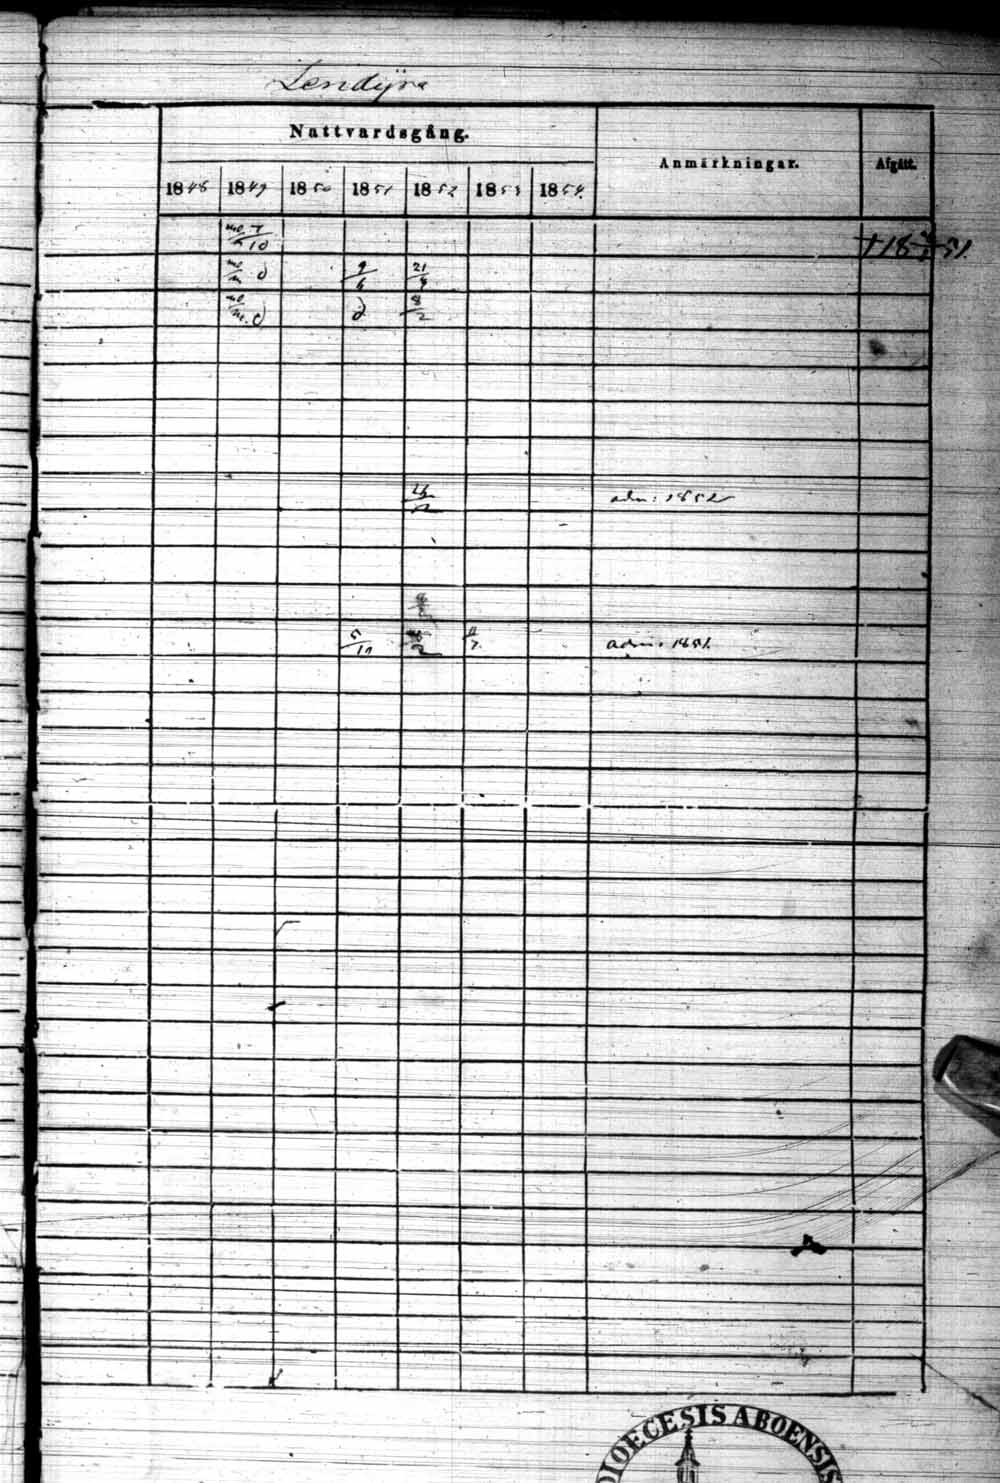 Lendÿra
Nattvardsgång.
Anmärkningar.
Afgått.
1848 1849 1850 1851 1852 1853 1854.
7/10
† 18 51.
9/6 21/4
8/2
adm: 1852
5/10 2 7
adm: 1851.
DIOECESIS ABOENSIS